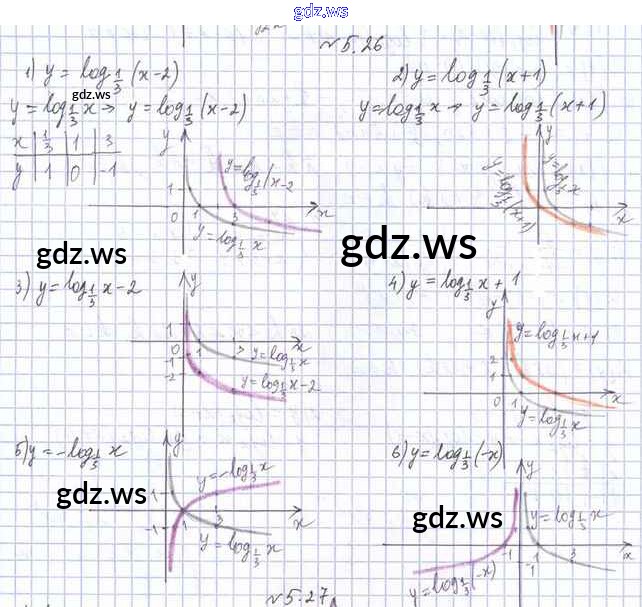 gdz.ws
№ 5.26
1) y = log_{1/3}(x-2)
gdz.ws
y = log_{1/3} x → y = log_{1/3}(x-2)
x | 1/3 | 1 | 3
y | 1 | 0 | -1
y
1
0 1 3 x
y = log_{1/3}(x-2
y = log_{1/3} x
2) y = log_{1/3}(x+1)
y = log_{1/3} x → y = log_{1/3}(x+1)
y
y = log_{1/3}(x+1)
y = log_{1/3} x
x
gdz.ws
gdz.ws
3) y = log_{1/3} x - 2
y
1
0 1 3 x
-1
-2
y = log_{1/3} x
y = log_{1/3} x - 2
4) y = log_{1/3} x + 1
y
2
1
0 1 x
y = log_{1/3} x + 1
y = log_{1/3} x
5) y = -log_{1/3} x
gdz.ws
y
1
-1
1 3 x
y = -log_{1/3} x
y = log_{1/3} x
6) y = log_{1/3}(-x)
gdz.ws
y
-1 1 3 x
-1
y = log_{1/3} x
y = log_{1/3}(-x)
№ 5.27